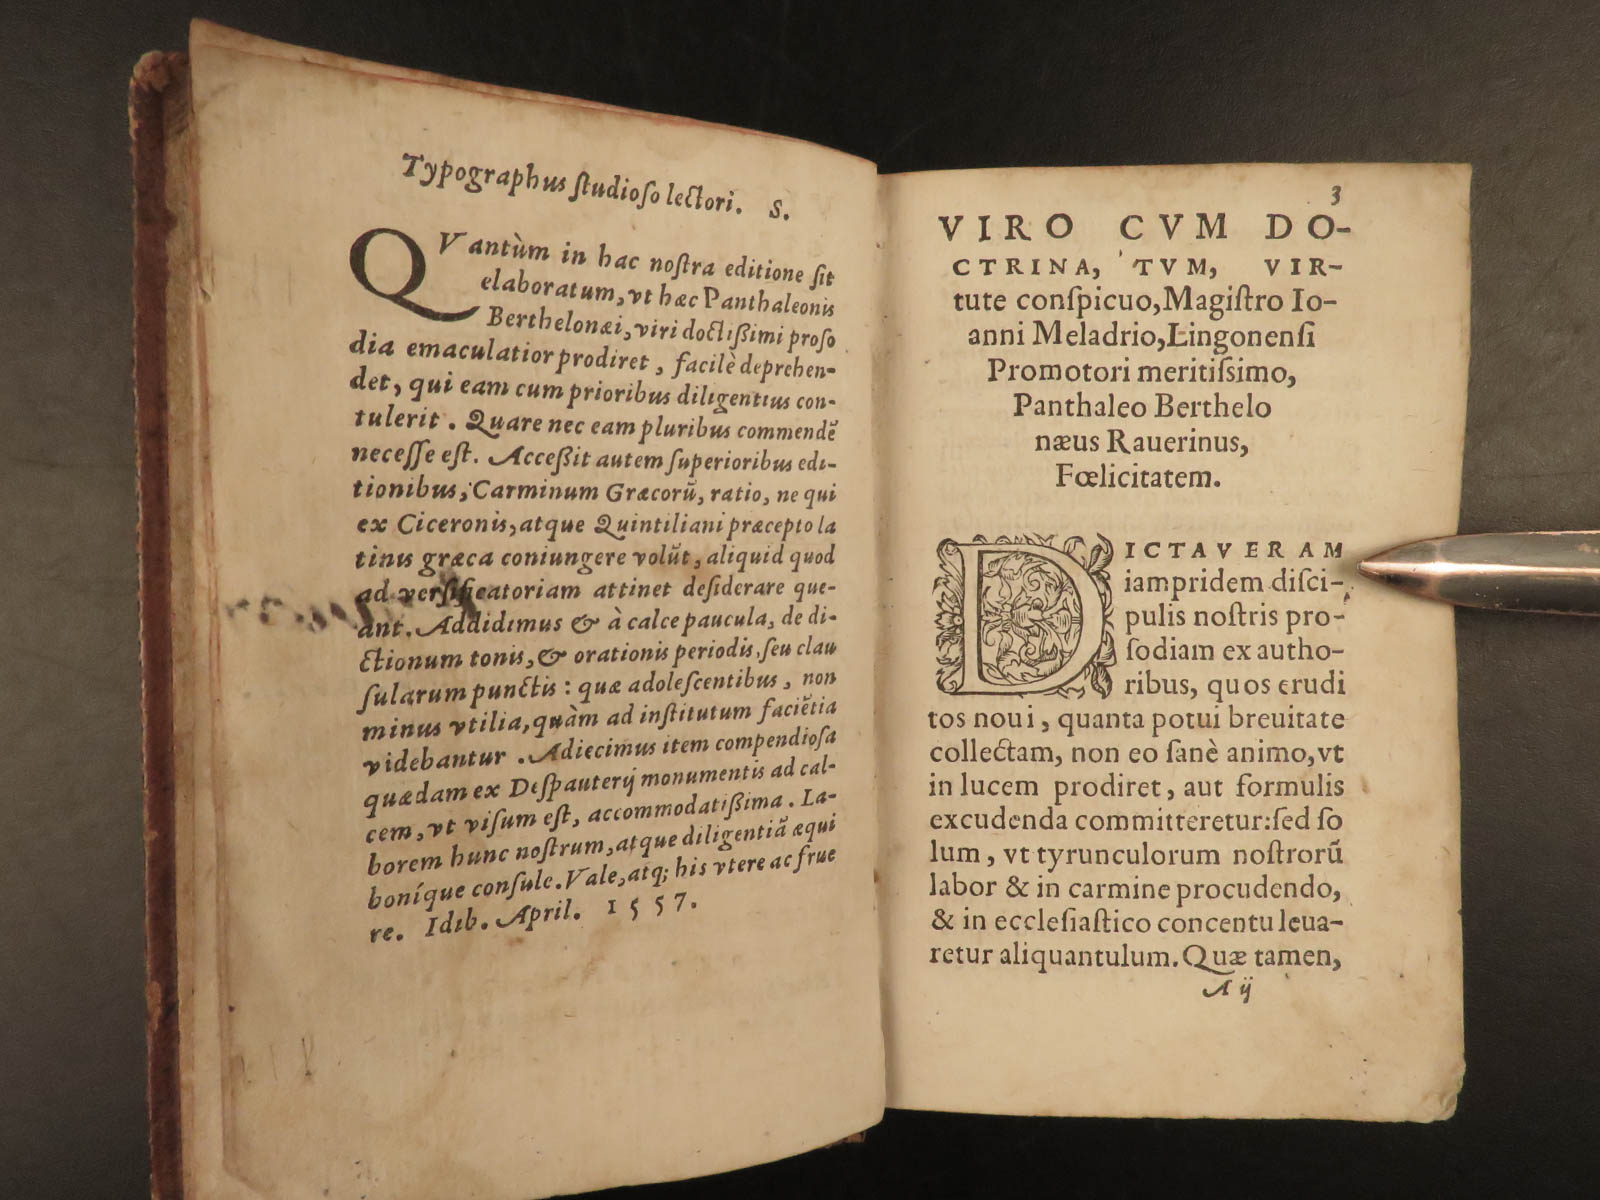 Typographus studioso lectori. S.
QVantùm in hac nostra editione sit
elaboratum, vt hæc Panthaleonis
Berthelonæi, viri doctißimi proso
dia emaculatior prodiret, facilè deprehen-
det, qui eam cum prioribus diligentius con-
tulerit. Quare nec eam pluribus commendē
necesse est. Acceßit autem superioribus edi-
tionibus, Carminum Græcorū, ratio, ne qui
ex Ciceronis, atque Quintiliani præcepto la
tinis græca coniungere volūt, aliquid quod
ad versificatoriam attinet desiderare que-
ant. Addidimus & à calce paucula, de di-
ctionum tonis, & orationis periodis, seu clau
sularum punctis: quæ adolescentibus, non
minus vtilia, quàm ad institutum faciētia
videbantur. Adiecimus item compendiosa
quædam ex Despauterij monumentis ad cal-
cem, vt visum est, accommodatißima. La-
borem hunc nostrum, atque diligentiā æqui
boníque consule. Vale, atq; his vtere ac frue
re. Idib. April. 1557.
3
VIRO CVM DO-
CTRINA, TVM, VIR-
tute conspicuo, Magistro Io-
anni Meladrio, Lingonensi
Promotori meritissimo,
Panthaleo Berthelo
næus Rauerinus,
Fœlicitatem.
DICTAVERAM
iampridem disci-
pulis nostris pro-
sodiam ex autho-
ribus, quos erudi
tos noui, quanta potui breuitate
collectam, non eo sanè animo, vt
in lucem prodiret, aut formulis
excudenda committeretur: sed so
lum, vt tyrunculorum nostrorū
labor & in carmine procudendo,
& in ecclesiastico concentu leua-
retur aliquantulum. Quæ tamen,
A ij